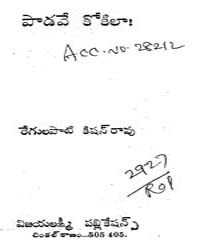 పాడవే కోకిలా!
Acc. no. 28212
రేగులపాటి కిషన్‌రావు
2927
ROI
విజయలక్ష్మి పబ్లికేషన్స్
సిరిసిల్ల, కరీం..505 405.